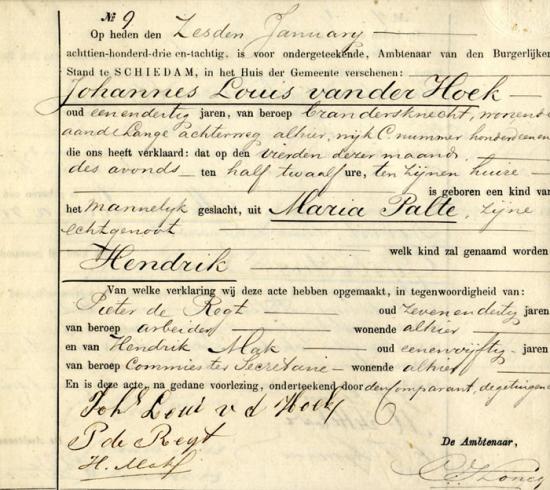 № 9
Op heden den Zesden January
achttien-honderd-drie en-tachtig, is voor ondergeteekende, Ambtenaar van den Burgerlijken
Stand te SCHIEDAM, in het Huis der Gemeente verschenen:
Johannes Louis van der Hoek
oud een en dertig jaren, van beroep brandersknecht, wonende
aan de Lange achterweg alhier, wijk C nummer honderd een en
die ons heeft verklaard: dat op den vierden dezer maand,
des avonds ten half twaalf ure, ten zijnen huize
is geboren een kind van
het mannelyk geslacht, uit Maria Palte, zijne
echtgenoot
welk kind zal genaamd worden
Hendrik
Van welke verklaring wij deze acte hebben opgemaakt, in tegenwoordigheid van:
Pieter de Regt oud zeven en dertig jaren
van beroep arbeider wonende alhier
en van Hendrik Mak oud een en vyftig jaren
van beroep Commies ter Secretarie wonende alhier
En is deze acte, na gedane voorlezing, onderteekend door den Comparant, de getuigen en
Johs Loui v d Hoek
P de Regt
H. Mak
De Ambtenaar,